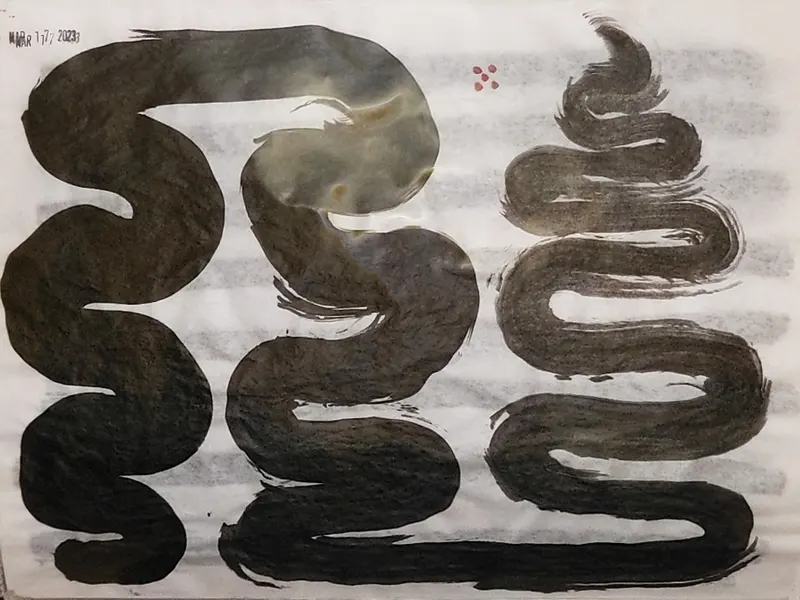 MAR 17 2023